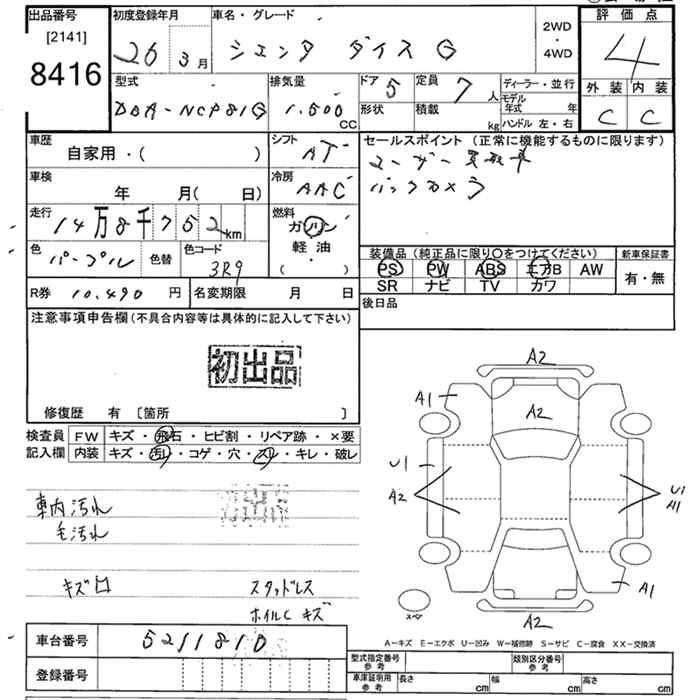 出品番号 初度登録年月 車名・グレード 2WD・4WD 評価点
[2141]
8416 26 3月 シエンタ ダイス G 4
型式 排気量 ドア 定員 ディーラー・並行 外装 内装
DBA-NCP81G 1,500 CC 5 7人 モデル年式 年 C C
形状 積載 kg ハンドル 左・右
車歴 シフト セールスポイント (正常に機能するものに限ります)
自家用・( ) AT ユーザー買取車
車検 冷房 バックカメラ
年 月(日) AAC
走行 燃料
14万8千752km ガソリン
軽油・
( )
色 色替 色コード 装備品(純正品に限り○をつけてください) 新車保証書
パープル 3R9 PS PW ABS エアB AW 有・無
SR ナビ TV カワ
R券 10,490円 名変期限 月 日 後日品
注意事項申告欄(不具合内容等は具体的に記入して下さい)
初出品
修復歴 有 [箇所 ]
検査員 FW キズ・飛石・ヒビ割・リペア跡・×要
記入欄 内装 キズ・汚レ・コゲ・穴・スレ・キレ・破レ
車内汚れ
毛汚れ
キズ スタッドレス
ホイルC キズ
A2
A1
A2
U1
A2
U1
A1
A1
A2
スペア
A-キズ E-エクボ U-凹み W-補修跡 S-サビ C-腐食 XX-交換済
車台番号 5211810
登録番号
型式指定番号 参考 類別区分番号 参考
車庫証明用 参考 長さ cm 幅 cm 高さ cm